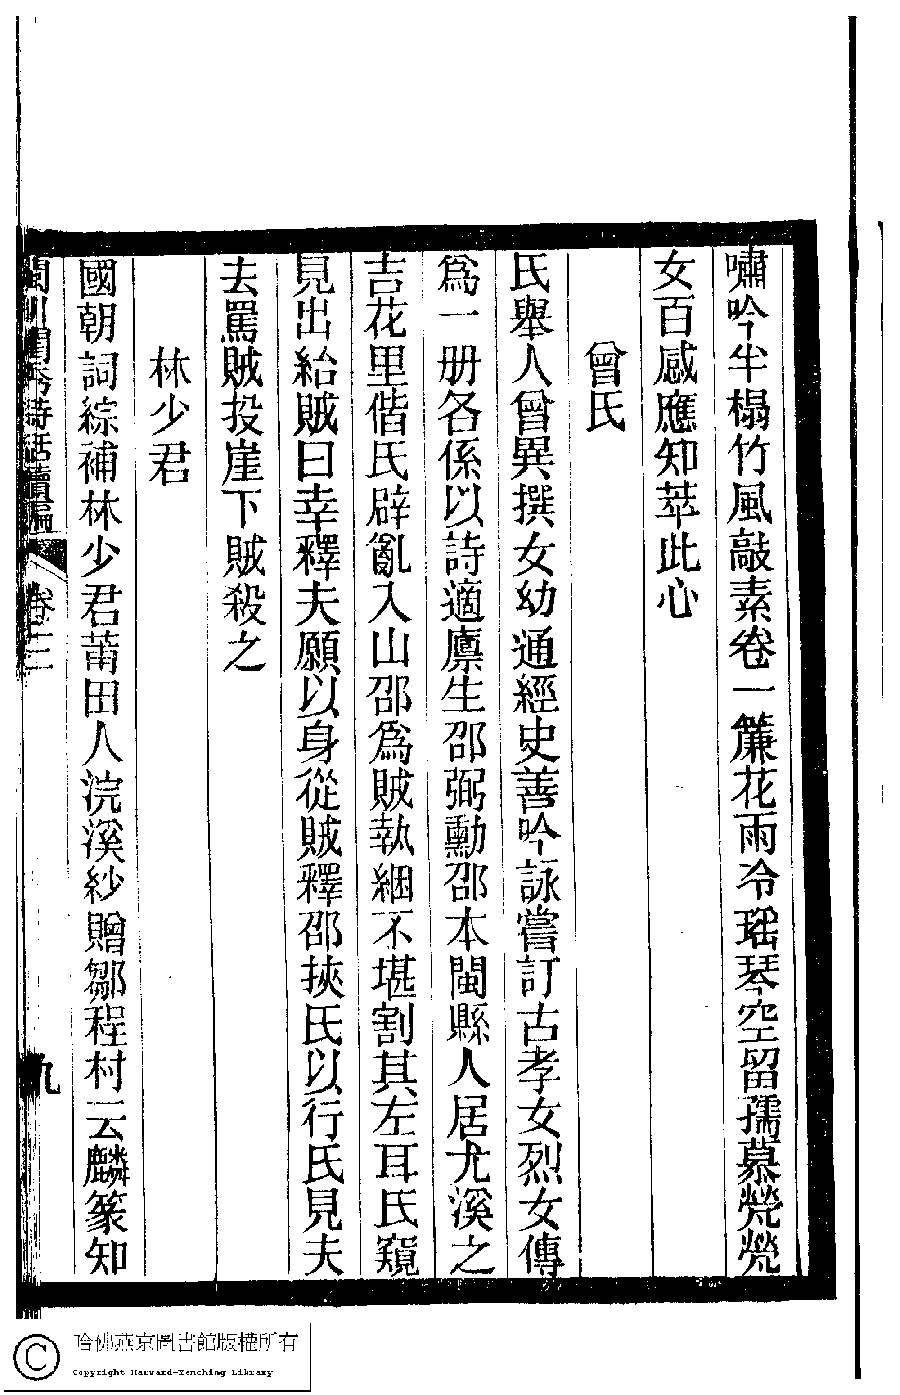 嘯吟半榻竹風敲素卷一簾花雨冷瑶琴空留孺慕煢煢
女百感應知萃此心
曾氏
氏舉人曾異撰女幼通經史善吟詠嘗訂古孝女烈女傳
爲一册各係以詩適廪生邵弼勳邵本閩縣人居尤溪之
吉花里偕氏辟亂入山邵爲賊執綑不堪割其左耳氏窺
見出紿賊曰幸釋夫願以身從賊釋邵挾氏以行氏見夫
去罵賊投崖下賊殺之
林少君
國朝詞綜補林少君莆田人浣溪紗贈鄒程村云麟篆知
閩川閨秀詩話續編 卷二 九
哈佛燕京圖書館版權所有
Copyright Harvard-Yenching Library